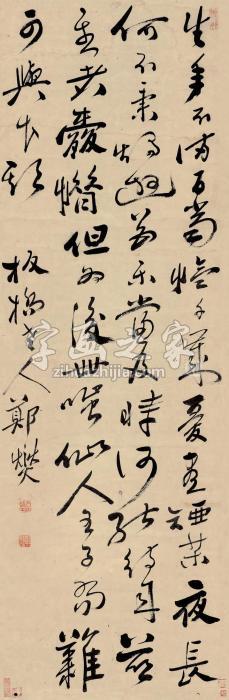 生年不滿百常懷千歲憂晝短苦夜長
何不秉燭遊為樂當及時何能待來茲
愚者愛惜但為後世嗤仙人王子喬難
可與等期
板橋老人鄭燮
zihuazhijia.com